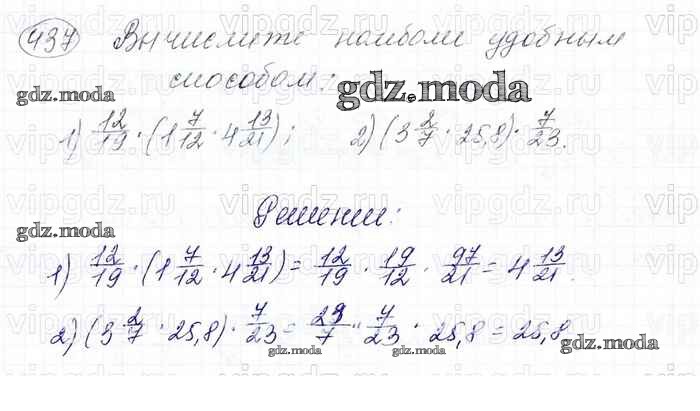 437 Вычислите наиболее удобным
способом:
gdz.moda
gdz.moda
1) 12/19 · (1 7/12 · 4 13/21); 2) (3 2/7 · 25,8) · 7/23.
Решение:
gdz.moda
1) 12/19 · (1 7/12 · 4 13/21) = 12/19 · 19/12 · 97/21 = 4 13/21.
2) (3 2/7 · 25,8) · 7/23 = 23/7 · 7/23 · 25,8 = 25,8
gdz.moda
gdz.moda
gdz.moda